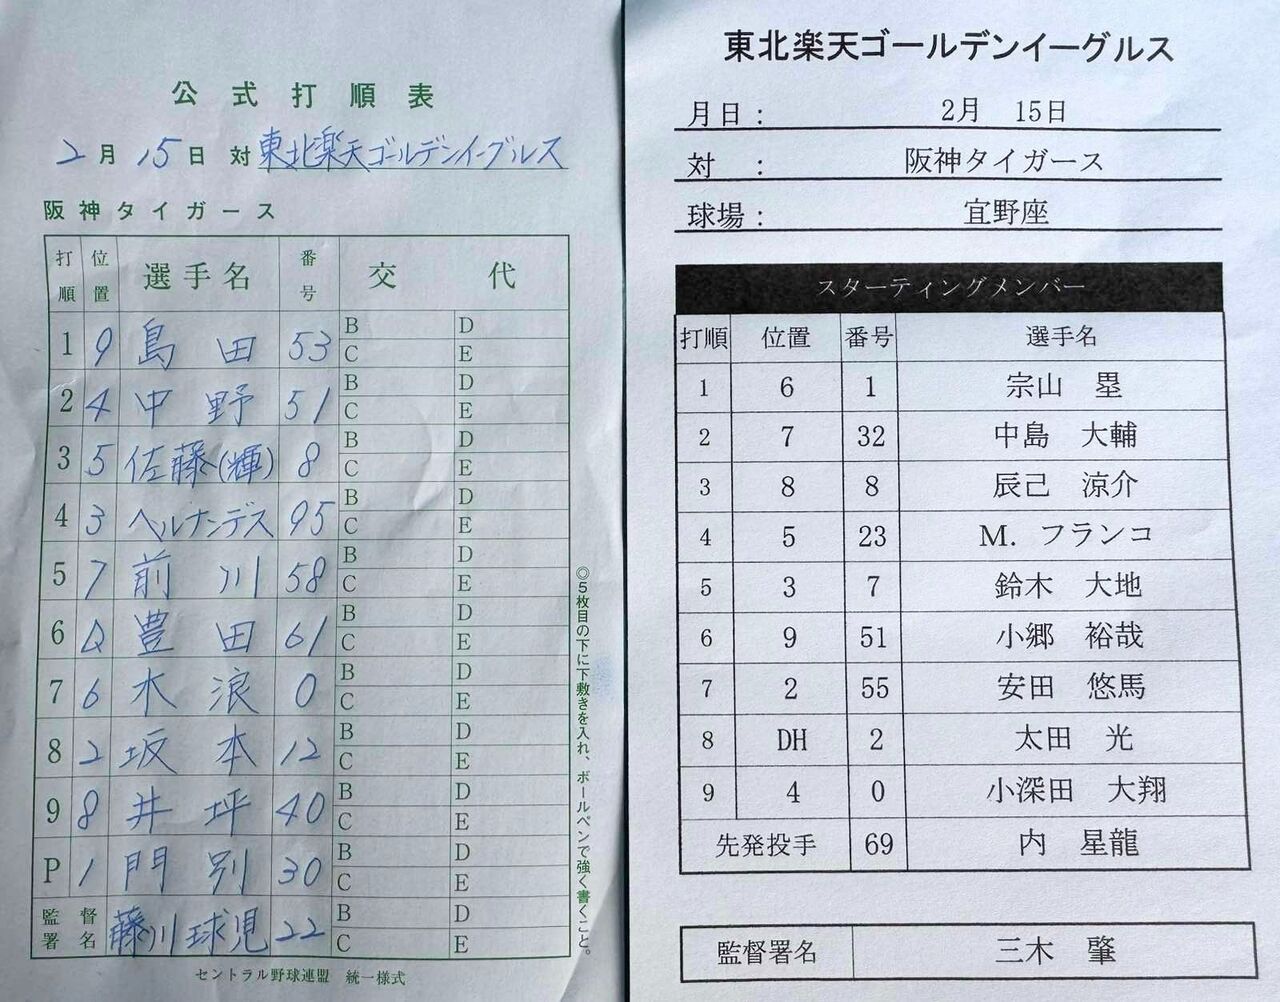 公式打順表
2月15日 対 東北楽天ゴールデンイーグルス
阪神タイガース
打順 位置 選手名 番号 交代
1 9 島田 53 B D
C E
2 4 中野 51 B D
C E
3 5 佐藤(輝) 8 B D
C E
4 3 ヘルナンデス 95 B D
C E
5 7 前川 58 B D
C E
6 D 豊田 61 B D
C E
7 6 木浪 0 B D
C E
8 2 坂本 12 B D
C E
9 8 井坪 40 B D
C E
P 1 門別 30 B D
C E
監督署名 藤川球児 22 B D
C E
セントラル野球連盟 統一様式
◎5枚目の下に下敷きを入れ、ボールペンで強く書くこと。
東北楽天ゴールデンイーグルス
月日: 2月 15日
対 : 阪神タイガース
球場: 宜野座
スターティングメンバー
打順 位置 番号 選手名
1 6 1 宗山 塁
2 7 32 中島 大輔
3 8 8 辰己 涼介
4 5 23 M. フランコ
5 3 7 鈴木 大地
6 9 51 小郷 裕哉
7 2 55 安田 悠馬
8 DH 2 太田 光
9 4 0 小深田 大翔
先発投手 69 内 星龍
監督署名 三木 肇